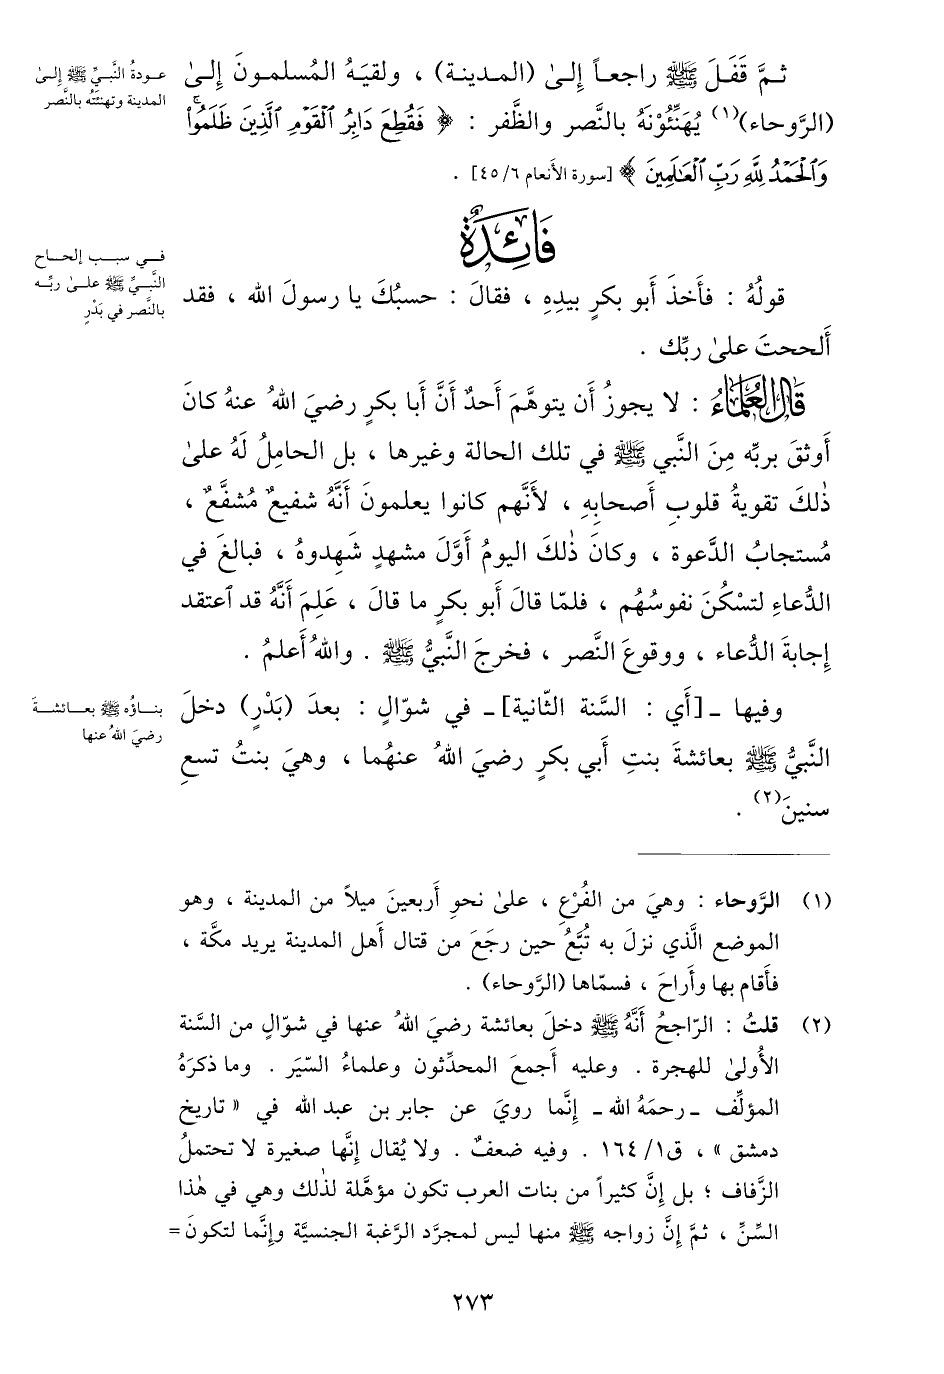 ثمَّ قَفَلَ ﷺ راجعاً إِلىٰ (المدينة) ، ولقيَهُ المُسلمونَ إِلىٰ
عودةُ النَّبيِّ ﷺ إِلىٰ
المدينة وتهنئتُه بالنَّصر
(الرَّوحاء)(١) يُهَنِّئُوْنَهُ بالنَّصر والظَّفر : ﴿ فَقُطِعَ دَابِرُ ٱلْقَوْمِ ٱلَّذِينَ ظَلَمُواْۚ
وَٱلْحَمْدُ لِلَّهِ رَبِّ ٱلْعَٰلَمِينَ ﴾ [سورة الأَنعام ٦/ ٤٥] .
فَائِدَةٌ
في سبب إلحاح
النَّبيِّ ﷺ علىٰ ربِّه
بالنَّصر في بَدْرٍ
قولُهُ : فأَخذَ أَبو بكرٍ بيدِهِ ، فقالَ : حسبُكَ يا رسولَ الله ، فقد
أَلححتَ علىٰ ربِّك .
قَالَ العُلَمَاءُ : لا يجوزُ أَن يتوهَّمَ أَحدٌ أَنَّ أَبا بكرٍ رضيَ اللهُ عنهُ كانَ
أَوثقَ بربِّه مِنَ النَّبي ﷺ في تلك الحالة وغيرها ، بل الحامِلُ لَهُ علىٰ
ذٰلكَ تقويةُ قلوبِ أَصحابِهِ ، لأَنَّهم كانوا يعلمونَ أَنَّهُ شفيعٌ مُشفَّعٌ ،
مُستجابُ الدَّعوة ، وكانَ ذٰلكَ اليومُ أَوَّلَ مشهدٍ شَهِدوهُ ، فبالغَ في
الدُّعاءِ لتسْكُنَ نفوسُهُم ، فلمّا قالَ أَبو بكرٍ ما قالَ ، عَلِمَ أَنَّهُ قد ٱعتقد
إِجابةَ الدُّعاء ، ووقوعَ النَّصر ، فخرجَ النَّبيُّ ﷺ . واللهُ أَعلمُ .
بناؤُه ﷺ بعائشةَ
رضيَ اللهُ عنها
وفيها ـ [أَي : السَّنة الثّانية] ـ في شوّالٍ : بعدَ (بَدْرٍ) دخلَ
النَّبيُّ ﷺ بعائشةَ بنتِ أَبي بكرٍ رضيَ اللهُ عنهُما ، وهيَ بنتُ تسعِ
سنينَ(٢) .
(١) الرَّوحاء : وهيَ من الفُرْعِ ، علىٰ نحوِ أَربعينَ ميلاً من المدينة ، وهو
الموضع الَّذي نزلَ به تُبَّعُ حين رجَعَ من قتال أَهل المدينة يريد مكَّة ،
فأَقام بها وأَراحَ ، فسمّاها (الرَّوحاء) .
(٢) قلتُ : الرّاجحُ أَنَّهُ ﷺ دخلَ بعائشة رضيَ اللهُ عنها في شوّالٍ من السَّنة
الأُولىٰ للهجرة . وعليه أَجمعَ المحدِّثون وعلماءُ السِّيَر . وما ذكرَهُ
المؤلِّف ـ رحمَهُ الله ـ إِنَّما رويَ عن جابر بن عبد الله في « تاريخ
دمشق » ، ق١/ ١٦٤ . وفيه ضعفٌ . ولا يُقال إِنَّها صغيرة لا تحتملُ
الزَّفاف ؛ بل إِنَّ كثيراً من بنات العرب تكون مؤهَّلة لذٰلك وهي في هٰذا
السِّنِّ ، ثمَّ إِنَّ زواجه ﷺ منها ليس لمجرَّد الرَّغبة الجنسيَّة وإِنَّما لتكونَ =
٢٧٣